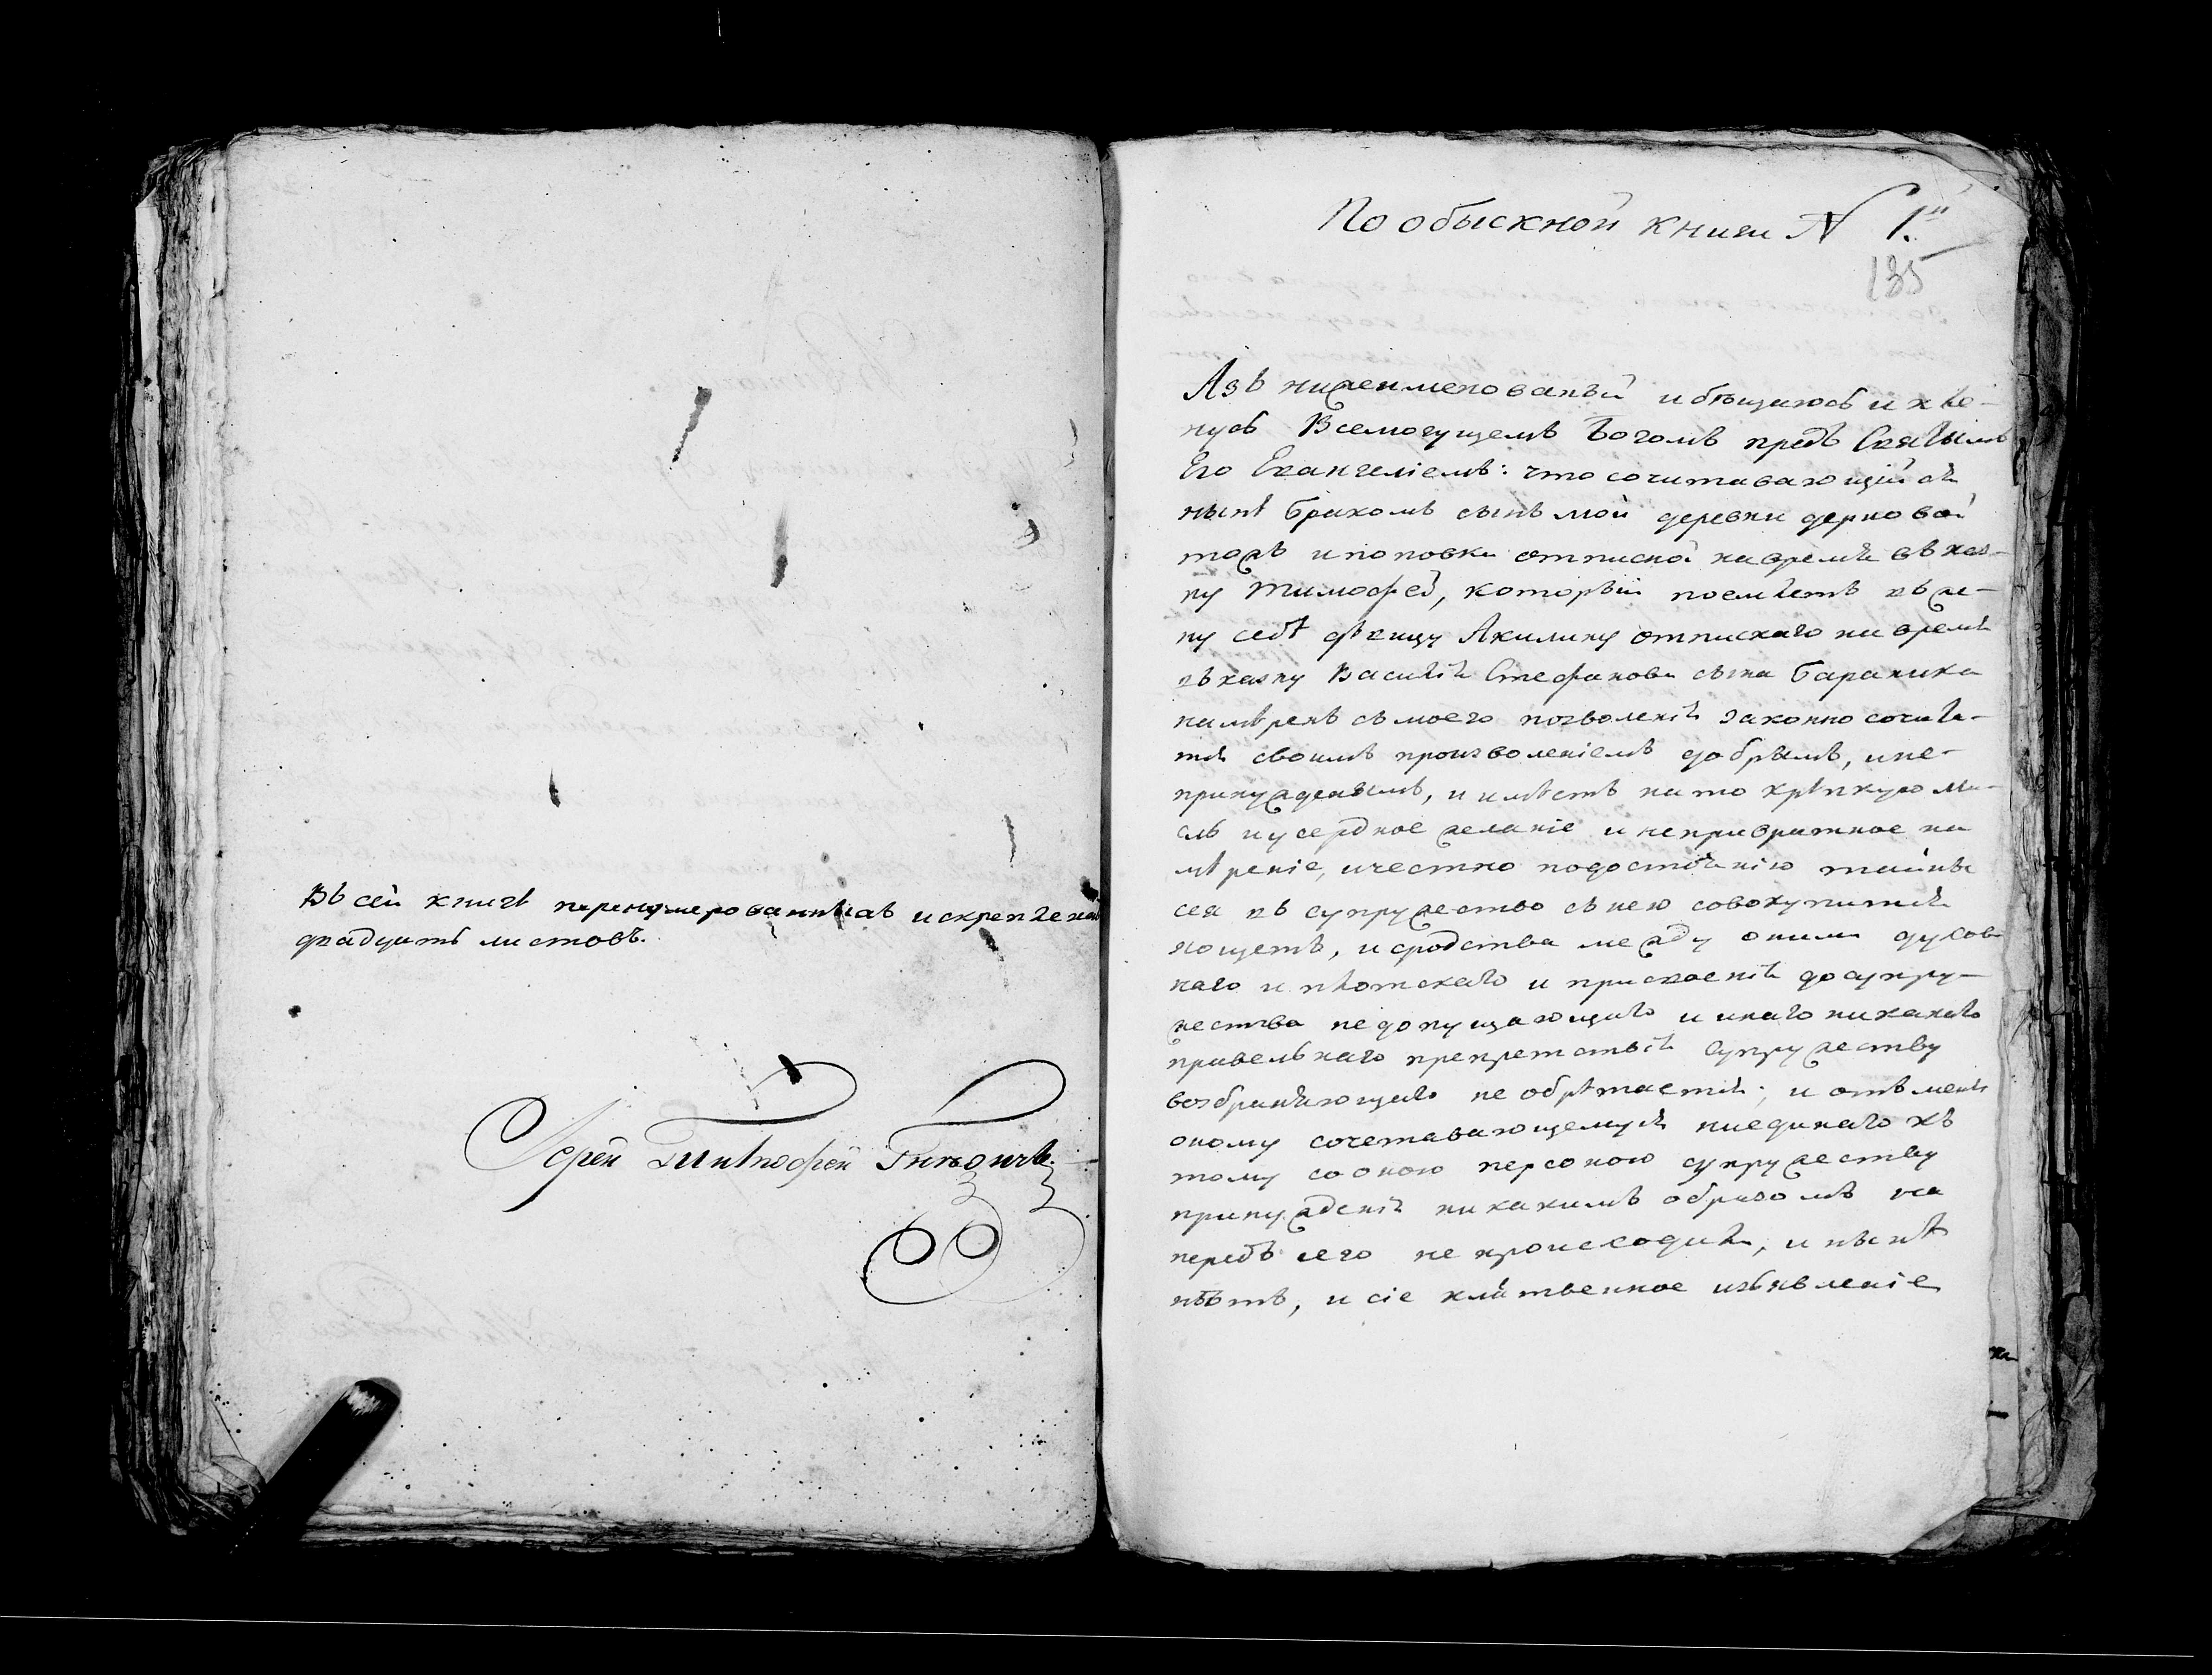 Въ сей книгѣ перенумерованныхъ и скрепленныхъ
двадцать листовъ.
Іерей
По обыскной книги N 1й
135
Азъ нижеименованый и обѣщаюсь и кле-
нусь Всемогущемъ Богомъ предъ Святымъ
Его Евангеліемъ: что сочитавающійся
нынѣ бракомъ сынъ мой деревни
тожъ и поповки отписной на время въ каз-
ну Тимофей, который поемлетъ въ же-
ну себѣ дѣвицу Акилину отпискаго на время
въ казну Василія Стефанова сына Бараника
намѣренъ съ моего позволенія законно сочита-
тся своимъ произволеніемъ добрымъ, и не-
принужденымъ, и имѣетъ на то крѣпкую мы-
сль и усердное желаніе и непривратное на
мѣреніе, и честно подостоянію тайны
сея въ супружество съ нею совокупится
хощетъ, и сродства между оними духов
наго и плотскаго и присвоенія до супру-
жества недопущающаго и инаго никакаго
правельнаго препретствія супружеству
возбраняющаго не обрѣтается; и отъ меня
оному сочетавающемуся ниединаго къ
тому со оною персоною супружеству
принужденія никакимъ образомъ на
передъ сего не происходила, и нынѣ
нѣтъ, и сіе клятвенное изъявленіе